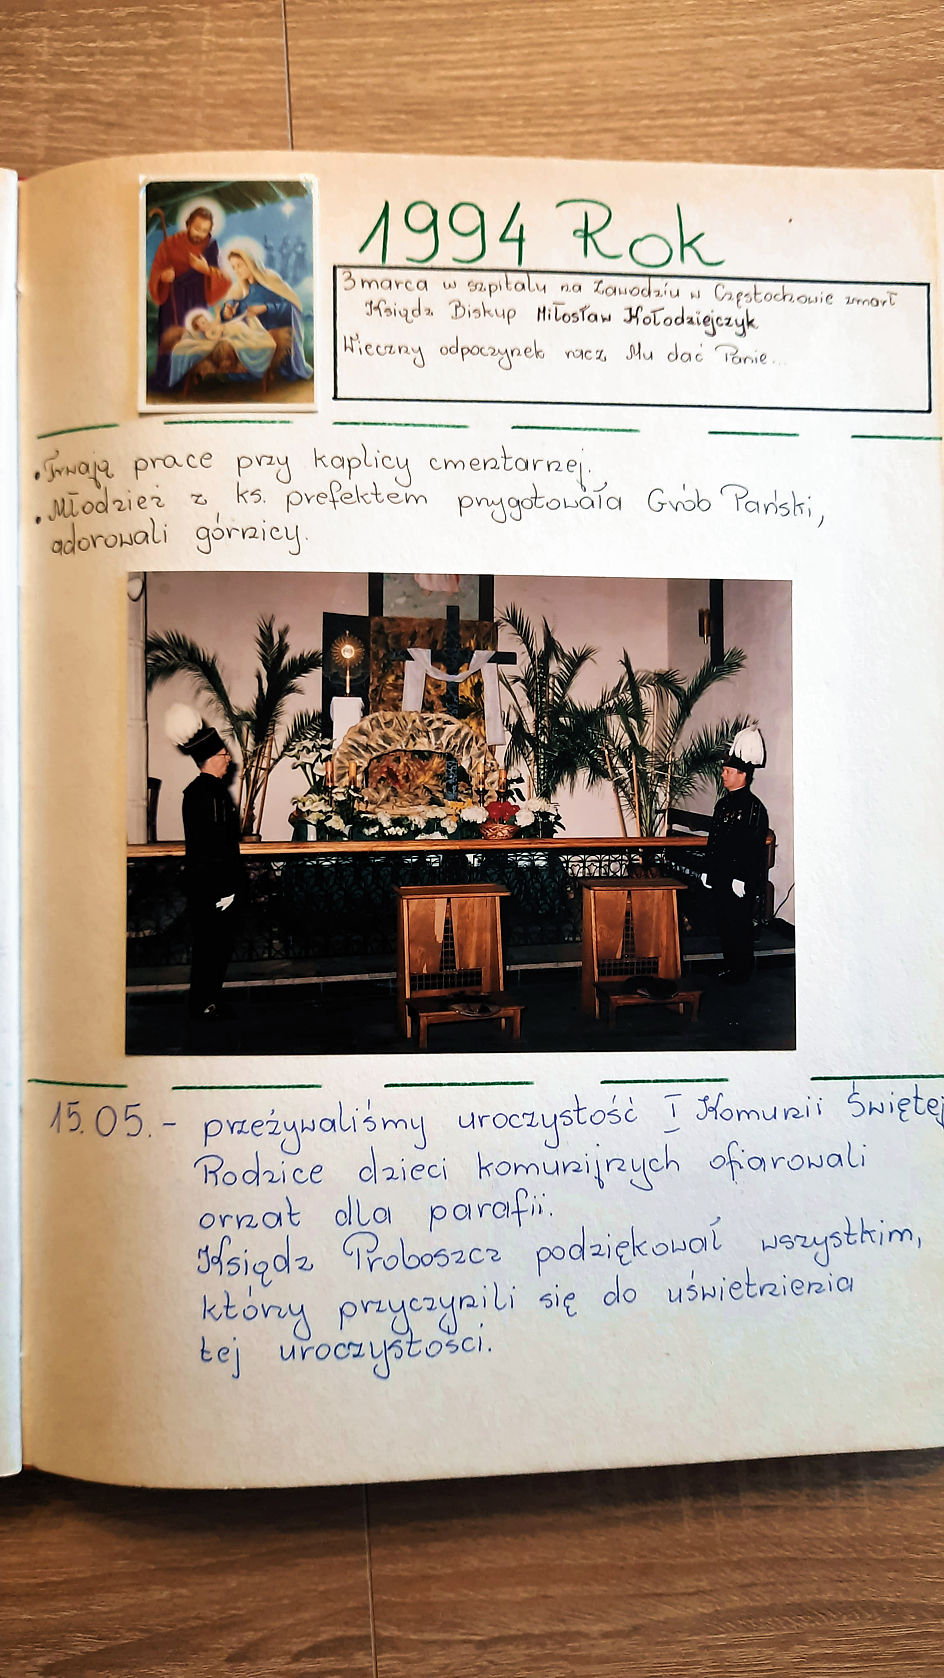 1994 Rok
3 marca w szpitalu na Zawodziu w Częstochowie zmarł
Ksiądz Biskup Miłosław Kołodziejczyk
Wieczny odpoczynek racz Mu dać Panie...
• Trwają prace przy kaplicy cmentarnej.
• Młodzież z ks. prefektem przygotowała Grób Pański,
adorowali górnicy.
15.05. - przeżywaliśmy uroczystość I Komunii Świętej
Rodzice dzieci komunijnych ofiarowali
ornat dla parafii.
Ksiądz Proboszcz podziękował wszystkim,
którzy przyczynili się do uświetnienia
tej uroczystości.